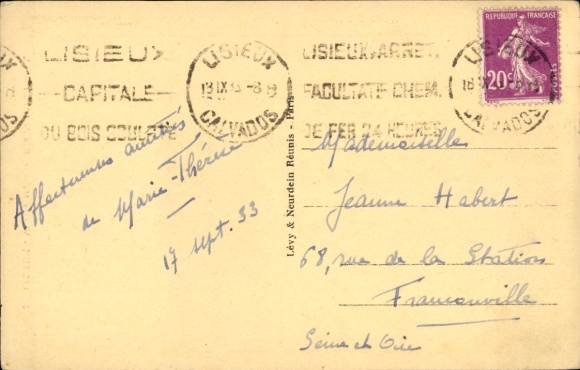 LISIEUX
CAPITALE
DU BOIS SCULPTÉ
LISIEUX
CALVADOS
LISIEUX, ARRET
FACULTATIF CHEM.
DE FER 24 HEURES
REPUBLIQUE FRANÇAISE
20c
POSTES
LISIEUX
CALVADOS
Affectueuses amitiés
de Marie-Thérèse
17 sept. 33
Lévy & Neurdein Réunis - Paris
Mademoiselle
Jeanne Habert
68, rue de la Station
Franconville
Seine et Oise